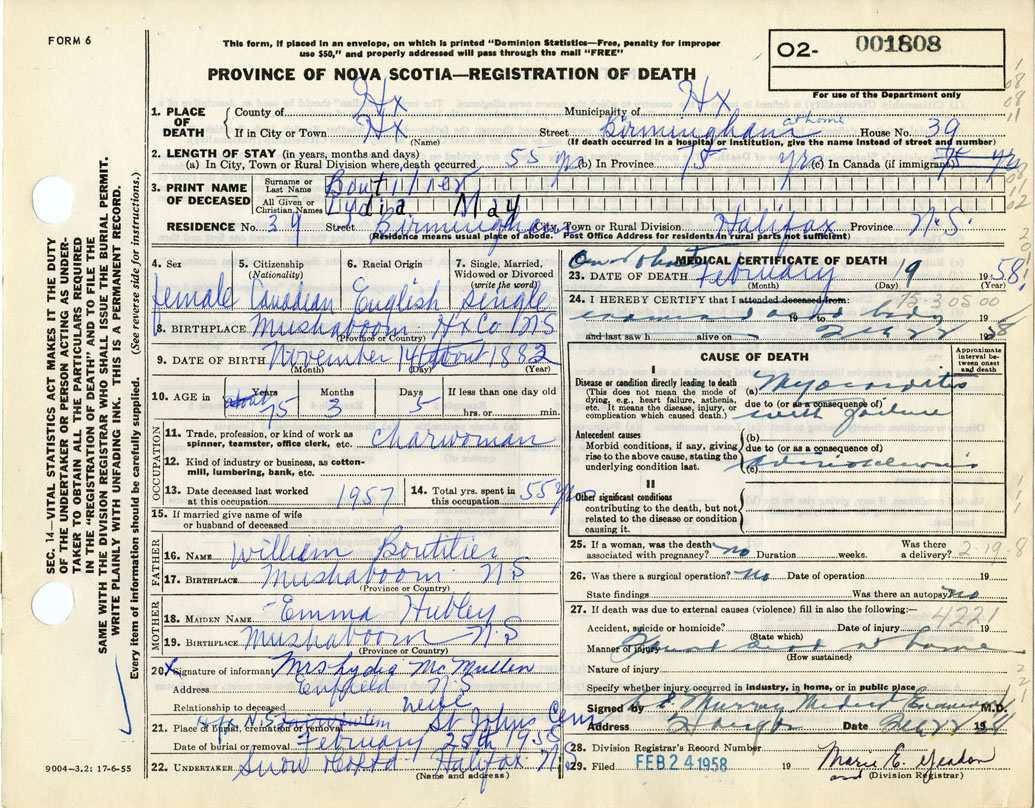 FORM 6
This form, if placed in an envelope, on which is printed "Dominion Statistics—Free, penalty for improper
use $50," and properly addressed will pass through the mail "FREE"
O2- 001808
For use of the Department only
PROVINCE OF NOVA SCOTIA—REGISTRATION OF DEATH
SEC. 14—VITAL STATISTICS ACT MAKES IT THE DUTY
OF THE UNDERTAKER OR PERSON ACTING AS UNDER-
TAKER TO OBTAIN ALL THE PARTICULARS REQUIRED
IN THE "REGISTRATION OF DEATH" AND TO FILE THE
SAME WITH THE DIVISION REGISTRAR WHO SHALL ISSUE THE BURIAL PERMIT.
WRITE PLAINLY WITH UNFADING INK. THIS IS A PERMANENT RECORD.
Every item of information should be carefully supplied. (See reverse side for instructions.)
1. PLACE OF DEATH
County of Hx Municipality of Hx
If in City or Town Hx Street Birmingham at home House No. 39
(Name) (If death occurred in a hospital or institution, give the name instead of street and number)
2. LENGTH OF STAY (in years, months and days)
(a) In City, Town or Rural Division where death occurred 55 yr (b) In Province 75 yr (c) In Canada (if immigrant)
3. PRINT NAME OF DECEASED
Surname or Last Name Boutilier
All Given or Christian Names Lydia May
RESIDENCE No. 39 Birmingham City, Town or Rural Division Halifax Province N.S.
(Residence means usual place of abode. Post Office Address for residents in rural parts not sufficient)
4. Sex female
5. Citizenship (Nationality) Canadian
6. Racial Origin English
7. Single, Married, Widowed or Divorced (write the word) Single
8. BIRTHPLACE Mushaboom Hx Co. N.S
(Province or Country)
9. DATE OF BIRTH November 14th about 1882
(Month) (Day) (Year)
10. AGE in about Years 75 Months 3 Days 5 If less than one day old
hrs. or min.
OCCUPATION
11. Trade, profession, or kind of work as spinner, teamster, office clerk, etc. charwoman
12. Kind of industry or business, as cotton-mill, lumbering, bank, etc.
13. Date deceased last worked at this occupation 1957
14. Total yrs. spent in this occupation 55 yrs
15. If married give name of wife or husband of deceased
FATHER
16. NAME William Boutilier
17. BIRTHPLACE Mushaboom N.S
(Province or Country)
MOTHER
18. MAIDEN NAME Emma Hubley
19. BIRTHPLACE Mushaboom N.S
(Province or Country)
20. X Signature of informant Mrs Lydia McMullen
Address Enfield N.S
Relationship to deceased neice
21. Place of burial, cremation or removal Hfx. N.S. St Johns Cem
Date of burial or removal February 25th 1958
22. UNDERTAKER Snow & Co Ltd Halifax N.S
(Name and address)
9004—3.2: 17-6-55
MEDICAL CERTIFICATE OF DEATH
23. DATE OF DEATH On or about February 19 1958.
(Month) (Day) (Year)
24. I HEREBY CERTIFY that I attended deceased from: 75-3 05 00
examined dead body 19 to 19
and last saw h alive on 58
CAUSE OF DEATH
Approximate interval between onset and death
I
Disease or condition directly leading to death
(This does not mean the mode of dying, e.g., heart failure, asthenia, etc. It means the disease, injury, or complication which caused death.)
(a) Myocarditis
due to (or as a consequence of)
with failure
Antecedent causes
Morbid conditions, if any, giving rise to the above cause, stating the underlying condition last.
(b)
due to (or as a consequence of)
(c) Arteriosclerosis
II
Other significant conditions
contributing to the death, but not related to the disease or condition causing it.
25. If a woman, was the death associated with pregnancy? no Duration weeks. Was there a delivery? 2-19-8
26. Was there a surgical operation? No Date of operation 19
State findings Was there an autopsy No
27. If death was due to external causes (violence) fill in also the following:—
4221
Accident, suicide or homicide? Date of injury 19
(State which)
Manner of injury Found dead at home
(How sustained)
Nature of injury
Specify whether injury occurred in industry, in home, or in public place
Signed by Murray Medical Examiner M.D.
Address Date Feb 22 19
28. Division Registrar's Record Number
29. Filed FEB 24 1958 19 Marie E. Yeadon
(Division Registrar)